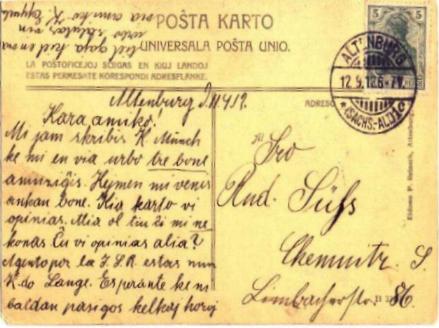 POŜTA KARTO
UNIVERSALA POŜTA UNIO.
LA POŜTOFICEJOJ SCIIGAS EN KIUJ LANDOJ
ESTAS PERMESATE KORESPONDI ADRESFLANKE.
ADRESO
ALTENBURG
12.9.
(SACHS.-ALT.)
5
Altenburg
Kara amiko!
Mi jam skribis K. Münch
ke mi en via urbo tre bone
amuziĝis. Hejmen mi venis
ankaŭ bone. Kia karto vi
opinias. Mia ol tiu ĉi mi ne
konas. Ĉu vi opinias alia?
Agento por la estas nun
K-do Lange. Esperante ke ni
baldaŭ pasigos kelkaj horoj
Fro
Rud. Süß
Chemnitz S.
Limbacherstr. 86.